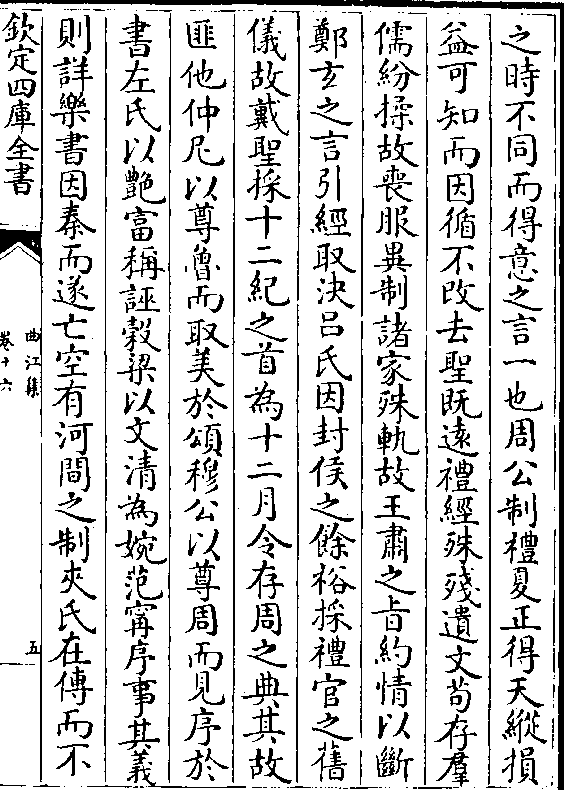 之時不同而得意之言一也周公制禮夏正得天縱損
益可知而因循不改去聖既遠禮經殊殘遺文茍存羣
儒紛揉故喪服異制諸家殊軌故王肅之旨約情以斷
鄭玄之言引經取決吕氏因封侯之餘裕採禮官之舊
儀故戴聖採十二紀之首為十二月令存周之典其故
匪他仲尼以尊魯而取美於頌穆公以尊周而見序於
書左氏以艷富稱誣榖梁以文清為婉范甯序事其義
則詳樂書因秦而遂亡空有河間之制夾氏在傳而不
欽定四庫全書
曲江集
卷十六
五